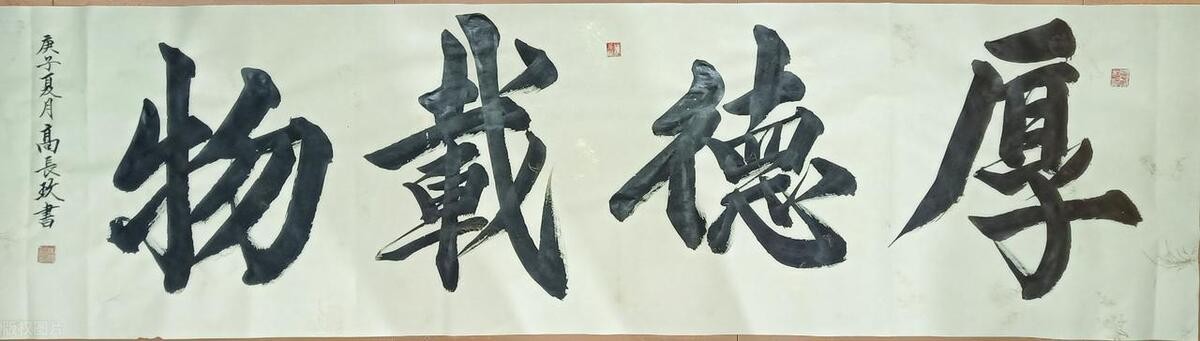 厚德載物
庚子夏月高長玫書
版权图片